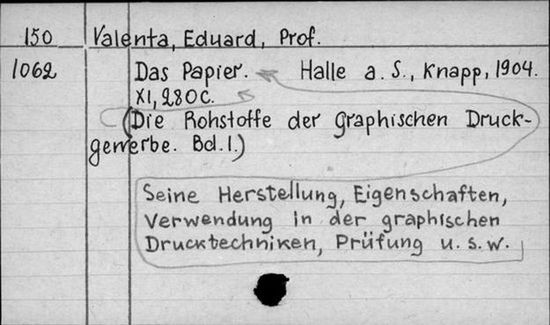 150 Valenta, Eduard, Prof.
1062 Das Papier. Halle a. S., Knapp, 1904.
XI, 280 C.
(Die Rohstoffe der graphischen Druck-
gewerbe. Bd. I.)
Seine Herstellung, Eigenschaften,
Verwendung in der graphischen
Drucktechniken, Prüfung u. s. w.